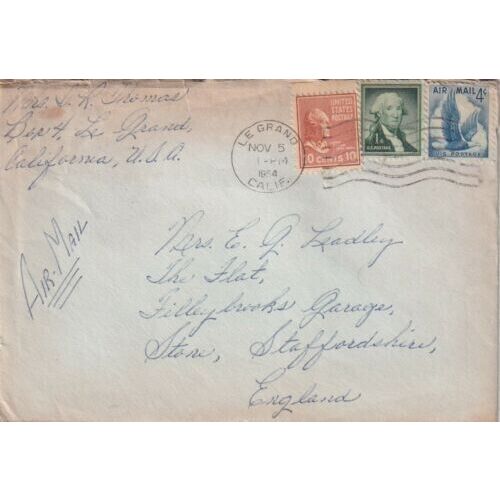 Mrs. L. R. Thomas
Box 4, Le Grand,
California, U.S.A.
LE GRAND
NOV 5
1-PM
1954
CALIF.
UNITED
STATES
POSTAGE
10 CENTS 10
1¢
U.S. POSTAGE
AIR MAIL 4¢
U.S. POSTAGE
AIR-MAIL
Mrs. E. G. Leadley
The Flat,
Filleybrooks Garage,
Stone, Staffordshire,
England